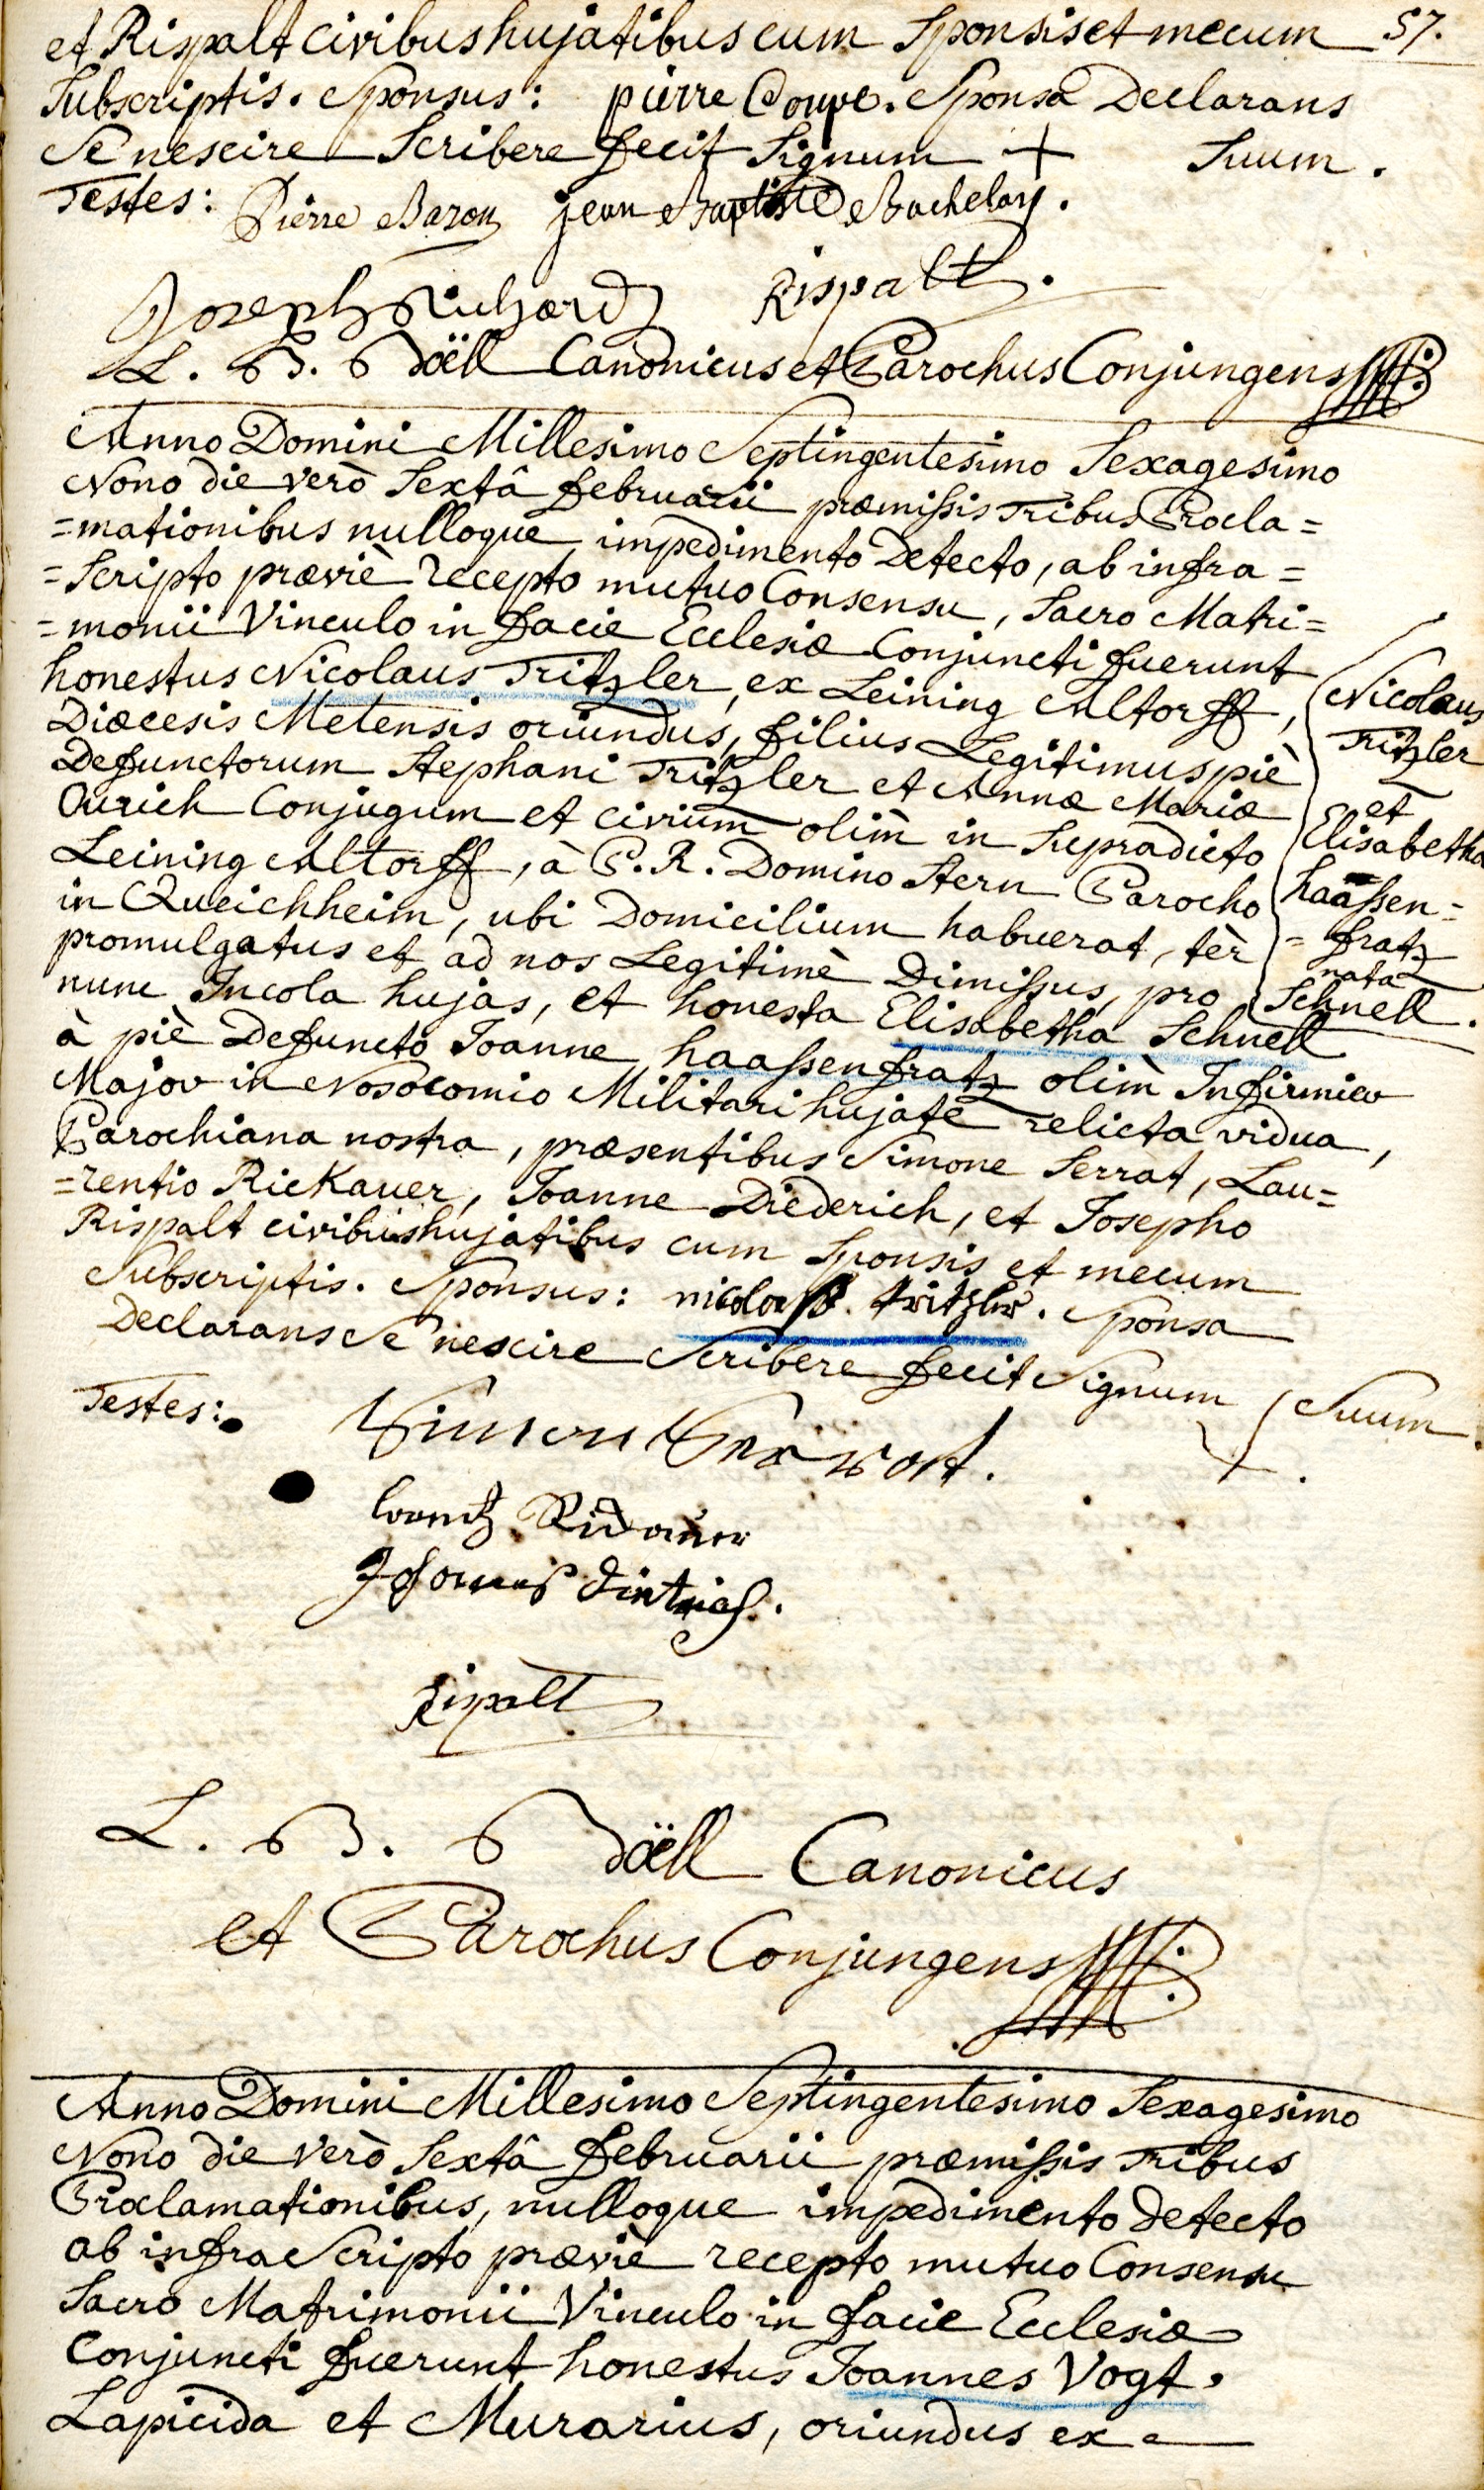 et Rispalt civibus hujatibus cum Sponsis et mecum 57.
Subscriptis. Sponsus: pierre Coupe. Sponsa Declarans
Se nescire Scribere fecit Signum + Suum.
Testes: Pierre Baron jean Baptiste Bachelay.
Joseph Richard Rispalt.
L. B. Döll Canonicus et Parochus Conjungens
Anno Domini Millesimo Septingentesimo Sexagesimo
Nono die verò Sextâ februarii præmissis tribus Procla=
=mationibus nulloque impedimento Detecto, ab infra=
=Scripto præviè recepto mutuo Consensu, Sacro Matri=
=monii Vinculo in facie Ecclesiæ Conjuncti fuerunt
honestus Nicolaus Tritzler, ex Leining Altorff,
Diœcesis Metensis oriundus, filius Legitimus piè
Defunctorum Stephani Tritzler et Annæ Mariæ
Ourich Conjugum et civium olim in Supradicto
Leining Altorff, à P. R. Domino Stern Parocho
in Queichheim, ubi Domicilium habuerat, tèr
promulgatus et ad nos Legitimè Dimissus, pro
nunc Incola hujas, et honesta Elisabetha Schnell
à piè Defuncto Joanne haassenfratz olim Infirmier
Major in Nosocomio Militari hujate relicta vidua,
Parochiana nostra, præsentibus Simone Serrat, Lau=
=rentio Rickauer, Joanne Diederich, et Josepho
Rispalt civibus hujatibus cum Sponsis et mecum
Subscriptis. Sponsus: nicolaß. tritzler. Sponsa
Declarans Se nescire Scribere fecit Signum + Suum.
Nicolaus
Tritzler
et
Elisabetha
haassen=
=fratz
nata
Schnell.
Testes:
Simon
Johannes dietrich.
Rispalt
L. B. Döll Canonicus
et Parochus Conjungens
Anno Domini Millesimo Septingentesimo Sexagesimo
Nono die verò Sextâ februarii præmissis tribus
Proclamationibus, nulloque impedimento detecto
ab infra Scripto præviè recepto mutuo Consensu
Sacro Matrimonii Vinculo in facie Ecclesiæ
Conjuncti fuerunt honestus Joannes Vogt.
Lapicida et Murarius, oriundus ex